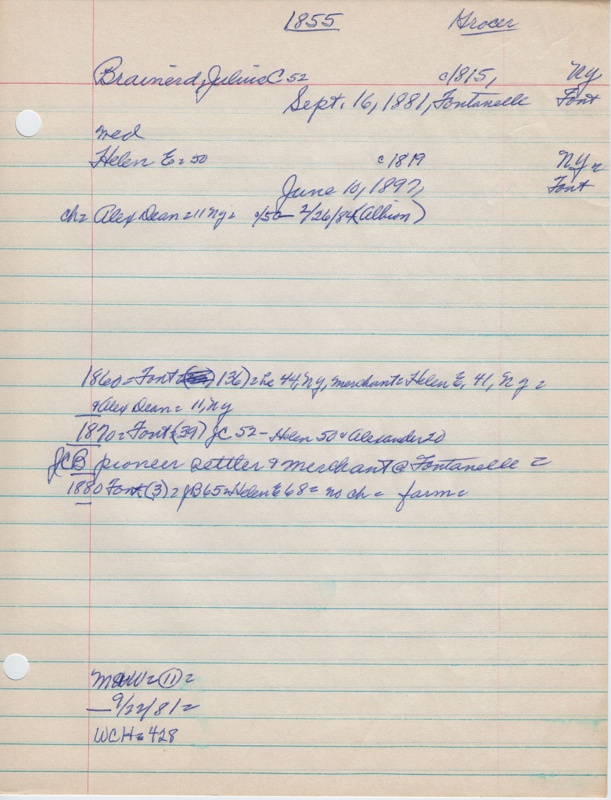 1855 Grocer
Brainerd, Julius C 52 c1815, Ny
Sept. 16, 1881, Fontanelle Font
wed
Helen E = 50 c1819 Ny =
June 10, 1897, Font
ch = Alex Dean = 11 Ny = c/50 - 2/26/84 (Albion)
1860 = Font = ( 136) = he 44, Ny, merchant = Helen E, 41, Ny =
& Alex Dean = 11, Ny
1870 = Font = (39) JC 52 - Helen 50 & Alexander 20
JCB pioneer settler & merchant @ Fontanelle =
1880 Font (3) = JB 65 = Helen E 68 = no ch = farm =
M&W = 11 =
— 9/22/81 =
WCH = 428